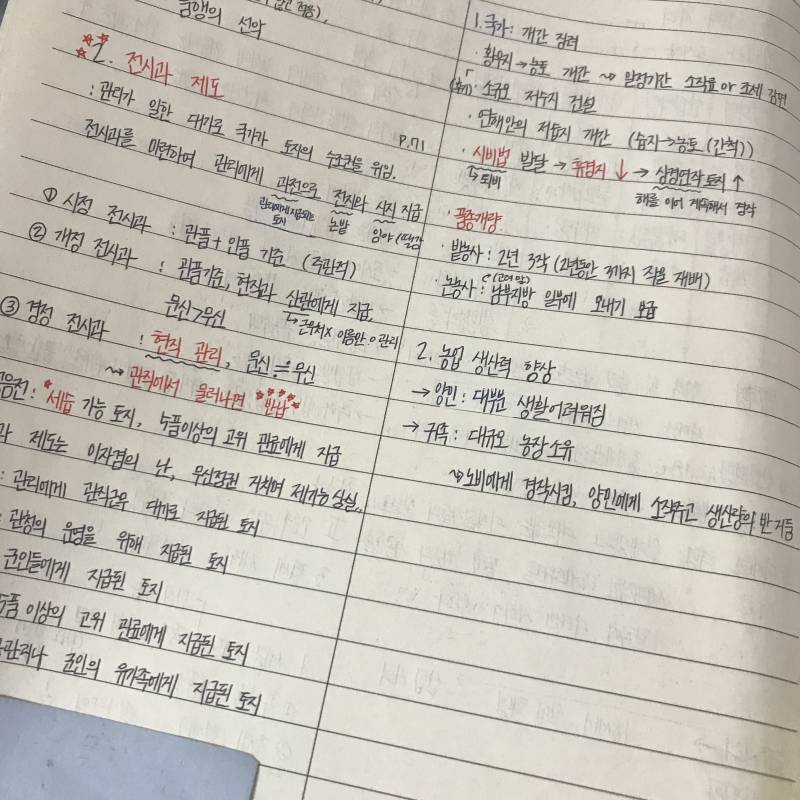 금행의 선악
2. 전시과 제도
: 관리가 일한 대가로 국가가 토지의 수조권을 위임.
P.71
전시과를 마련하여 관리에게 과전으로 전지와 시지 지급
관리에게 지급되는 토지
논밭
임야(땔감
① 시정 전시과 : 관품+인품 기준 (주관적)
② 개정 전시과 : 관품기준, 현직과 산관에게 지급
문신>무신
↳근무처X 이름만 관리
③ 경정 전시과 : 현직 관리, 문신≓무신
↝ 관직에서 물러나면 반납
음전: *세습 가능 토지, 5품이상의 고위 관료에게 지급
과 제도는 이자겸의 난, 무신정권 거치며 제기능 상실..
: 관리에게 관직근무 대가로 지급된 토지
: 관청의 운영을 위해 지급된 토지
군인들에게 지급된 토지
5품 이상의 고위 관료에게 지급된 토지
군인의 유가족에게 지급된 토지
1. 국가: 개간 장려
· 황무지→농토 개간 ↝ 일정기간 소작료 or 조세 감면
· 소규모 저수지 건설
· 연해안의 저습지 개간 (습지→농토(간척))
· 시비법 발달 → 휴경지 ↓ → 상경연작 토지 ↑
↳퇴비
해를 이어 계속해서 경작
· 품종개량
· 밭농사 : 2년 3작 (2년동안 3가지 작물 재배)
(고려 말)
· 논농사 : 남부지방 일부에 모내기 보급
2. 농업 생산력 향상
→ 양민 : 대부분 생활어려워짐
→ 귀족 : 대규모 농장 소유
↝노비에게 경작시킴, 양민에게 소작주고 생산량의 반 거둠